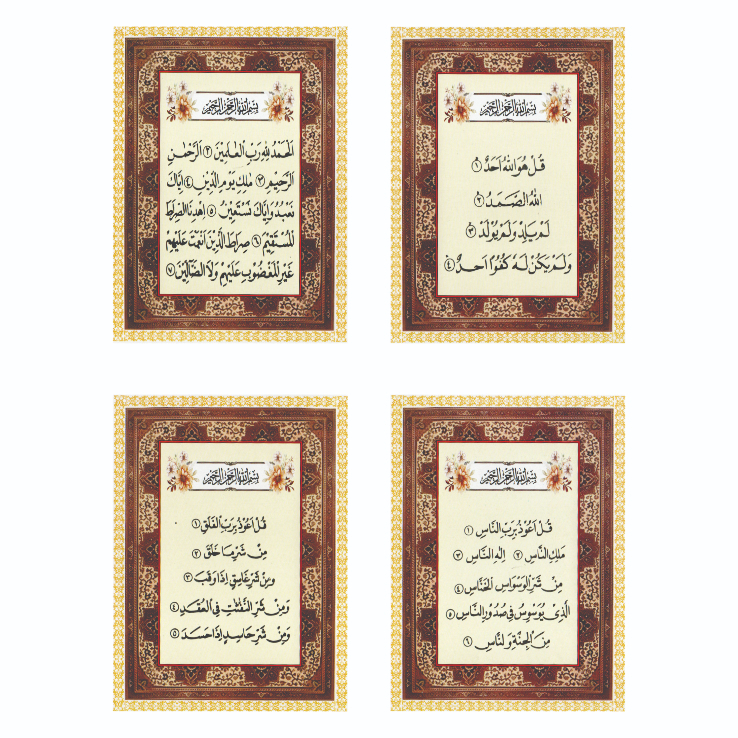 بِسْمِ اللهِ الرَّحْمٰنِ الرَّحِيْمِ
اَلْحَمْدُ لِلّٰهِ رَبِّ الْعٰلَمِيْنَ ٢ اَلرَّحْمٰنِ
الرَّحِيْمِ ٣ مٰلِكِ يَوْمِ الدِّيْنِ ٤ اِيَّاكَ
نَعْبُدُ وَاِيَّاكَ نَسْتَعِيْنُ ٥ اِهْدِنَا الصِّرَاطَ
الْمُسْتَقِيْمَ ٦ صِرَاطَ الَّذِيْنَ اَنْعَمْتَ عَلَيْهِمْ
غَيْرِ الْمَغْضُوْبِ عَلَيْهِمْ وَلَا الضَّآلِّيْنَ ٧
بِسْمِ اللهِ الرَّحْمٰنِ الرَّحِيْمِ
قُلْ هُوَ اللّٰهُ اَحَدٌ ١
اَللّٰهُ الصَّمَدُ ٢
لَمْ يَلِدْ وَلَمْ يُوْلَدْ ٣
وَلَمْ يَكُنْ لَهٗ كُفُوًا اَحَدٌ ٤
بِسْمِ اللهِ الرَّحْمٰنِ الرَّحِيْمِ
قُلْ اَعُوْذُ بِرَبِّ الْفَلَقِ ١
مِنْ شَرِّ مَا خَلَقَ ٢
وَمِنْ شَرِّ غَاسِقٍ اِذَا وَقَبَ ٣
وَمِنْ شَرِّ النَّفّٰثٰتِ فِى الْعُقَدِ ٤
وَمِنْ شَرِّ حَاسِدٍ اِذَا حَسَدَ ٥
بِسْمِ اللهِ الرَّحْمٰنِ الرَّحِيْمِ
قُلْ اَعُوْذُ بِرَبِّ النَّاسِ ١
مَلِكِ النَّاسِ ٢ اِلٰهِ النَّاسِ ٣
مِنْ شَرِّ الْوَسْوَاسِ الْخَنَّاسِ ٤
الَّذِىْ يُوَسْوِسُ فِىْ صُدُوْرِ النَّاسِ ٥
مِنَ الْجِنَّةِ وَالنَّاسِ ٦